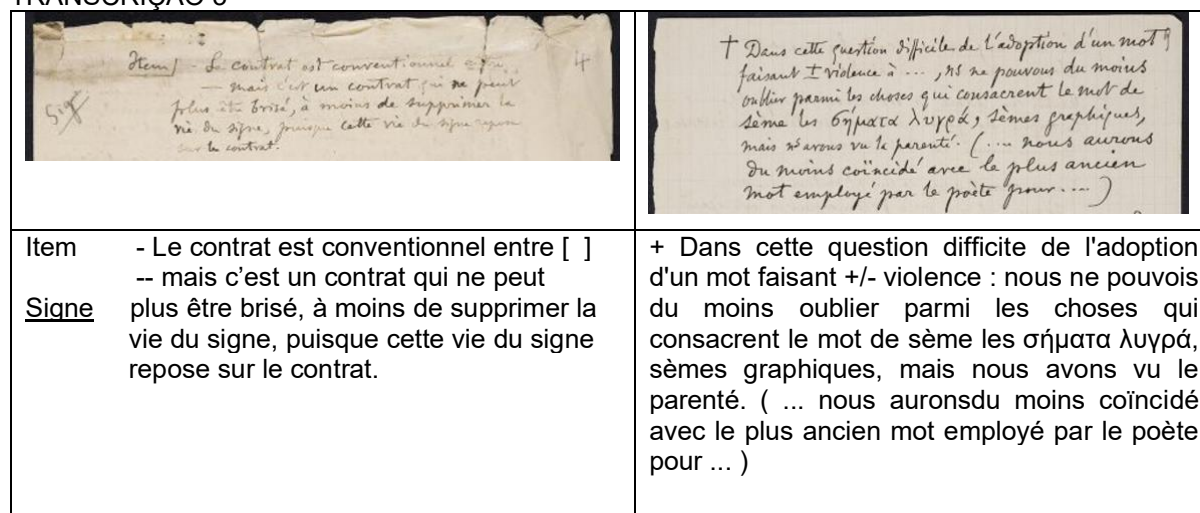 TRANSCRIÇÃO
Item) - Le contrat est conventionnel 4
— mais c'est un contrat qui ne peut
plus être brisé, à moins de supprimer la
vie du signe, puisque cette vie du signe repose
sur le contrat.
† Dans cette question difficile de l'adoption d'un mot
faisant ± violence à ... , ns ne pouvons du moins
oublier parmi les choses qui consacrent le mot de
sème les σήματα λυγρά, sèmes graphiques,
mais ns avons vu la parenté. (.... nous aurons
du moins coïncidé avec le plus ancien
mot employé par le poète pour .... )
Item - Le contrat est conventionnel entre [ ]
-- mais c’est un contrat qui ne peut
Signe plus être brisé, à moins de supprimer la
vie du signe, puisque cette vie du signe
repose sur le contrat.
+ Dans cette question difficite de l'adoption
d'un mot faisant +/- violence : nous ne pouvois
du moins oublier parmi les choses qui
consacrent le mot de sème les σήματα λυγρά,
sèmes graphiques, mais nous avons vu le
parenté. ( ... nous auronsdu moins coïncidé
avec le plus ancien mot employé par le poète
pour ... )